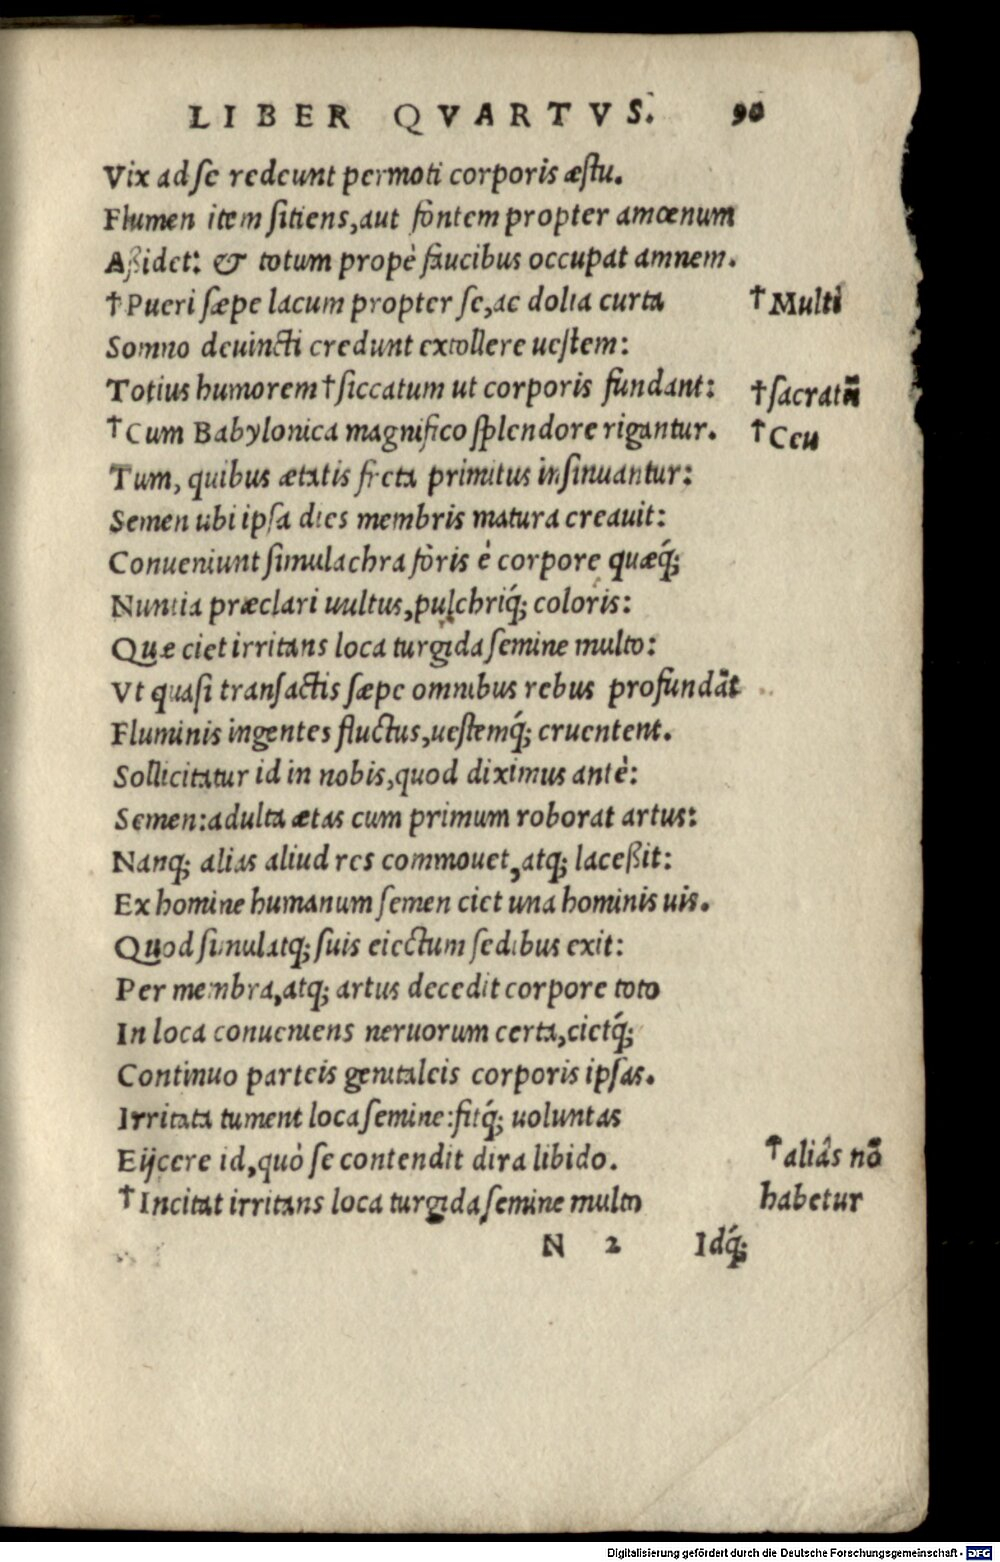 LIBER QVARTVS. 90
Vix ad se redeunt permoti corporis æstu.
Flumen item sitiens, aut fontem propter amœnum
Aßidet: & totum propè faucibus occupat amnem.
†Pueri sæpe lacum propter se, ac dolia curta †Multi
Somno deuincti credunt extollere uestem:
Totius humorem †siccatum ut corporis fundant: †sacratū
†Cum Babylonica magnifico splendore rigantur. †Ceu
Tum, quibus ætatis freta primitus insinuantur:
Semen ubi ipsa dies membris matura creauit:
Conueniunt simulachra fòris è corpore quæq́;
Nuntia præclari uultus, pulchriq́; coloris:
Quæ ciet irritans loca turgida semine multo:
Vt quasi transactis sæpe omnibus rebus profundāt
Fluminis ingentes fluctus, uestemq́; cruentent.
Sollicitatur id in nobis, quod diximus antè:
Semen: adulta ætas cum primum roborat artus:
Nanq; alias aliud res commouet, atq; laceßit:
Ex homine humanum semen ciet una hominis uis.
Quod simulatq; suis eiectum sedibus exit:
Per membra, atq; artus decedit corpore toto
In loca conueniens neruorum certa, cietq́;
Continuo parteis genitaleis corporis ipsas.
Irritata tument loca semine: fitq́; uoluntas
Eijcere id, quò se contendit dira libido. †aliâs nō
†Incitat irritans loca turgida semine multo habetur
N 2 Idq́;
Digitalisierung gefördert durch die Deutsche Forschungsgemeinschaft - DFG